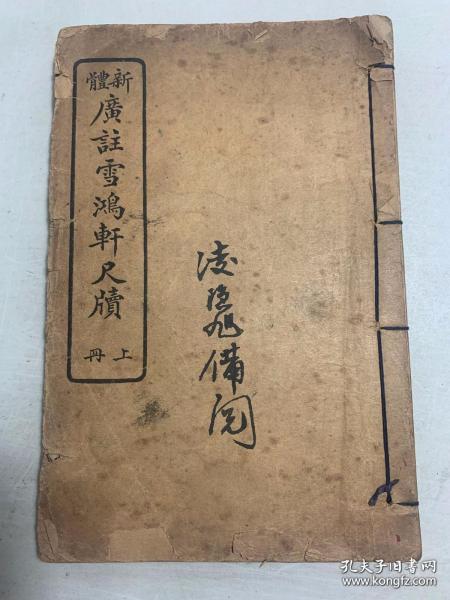 新體
廣註雪鴻軒尺牘
上冊
凌
備閱
孔夫子旧书网
www.kongfz.com